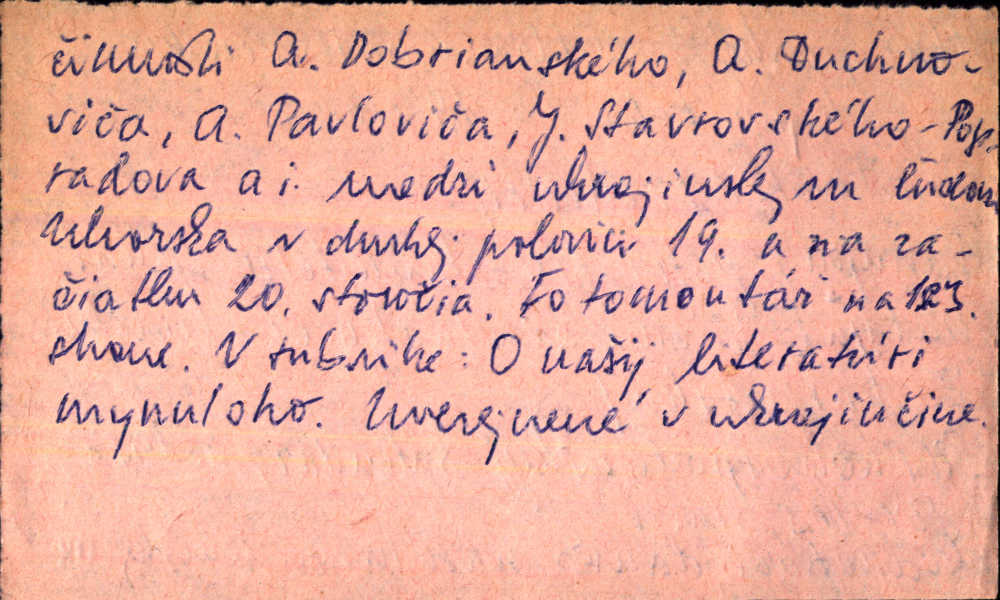 činnosti A. Dobrianského, A. Duchno-
viča, A. Pavloviča, J. Stavrovského-Pop-
radova a i. medzi ukrajinským ľudom
Uhorska v druhej polovici 19. a na za-
čiatku 20. storočia. Fotomontáž na 123.
strane. V rubrike: O našij literatúri
mynuloho. Uverejnené v ukrajinčine.